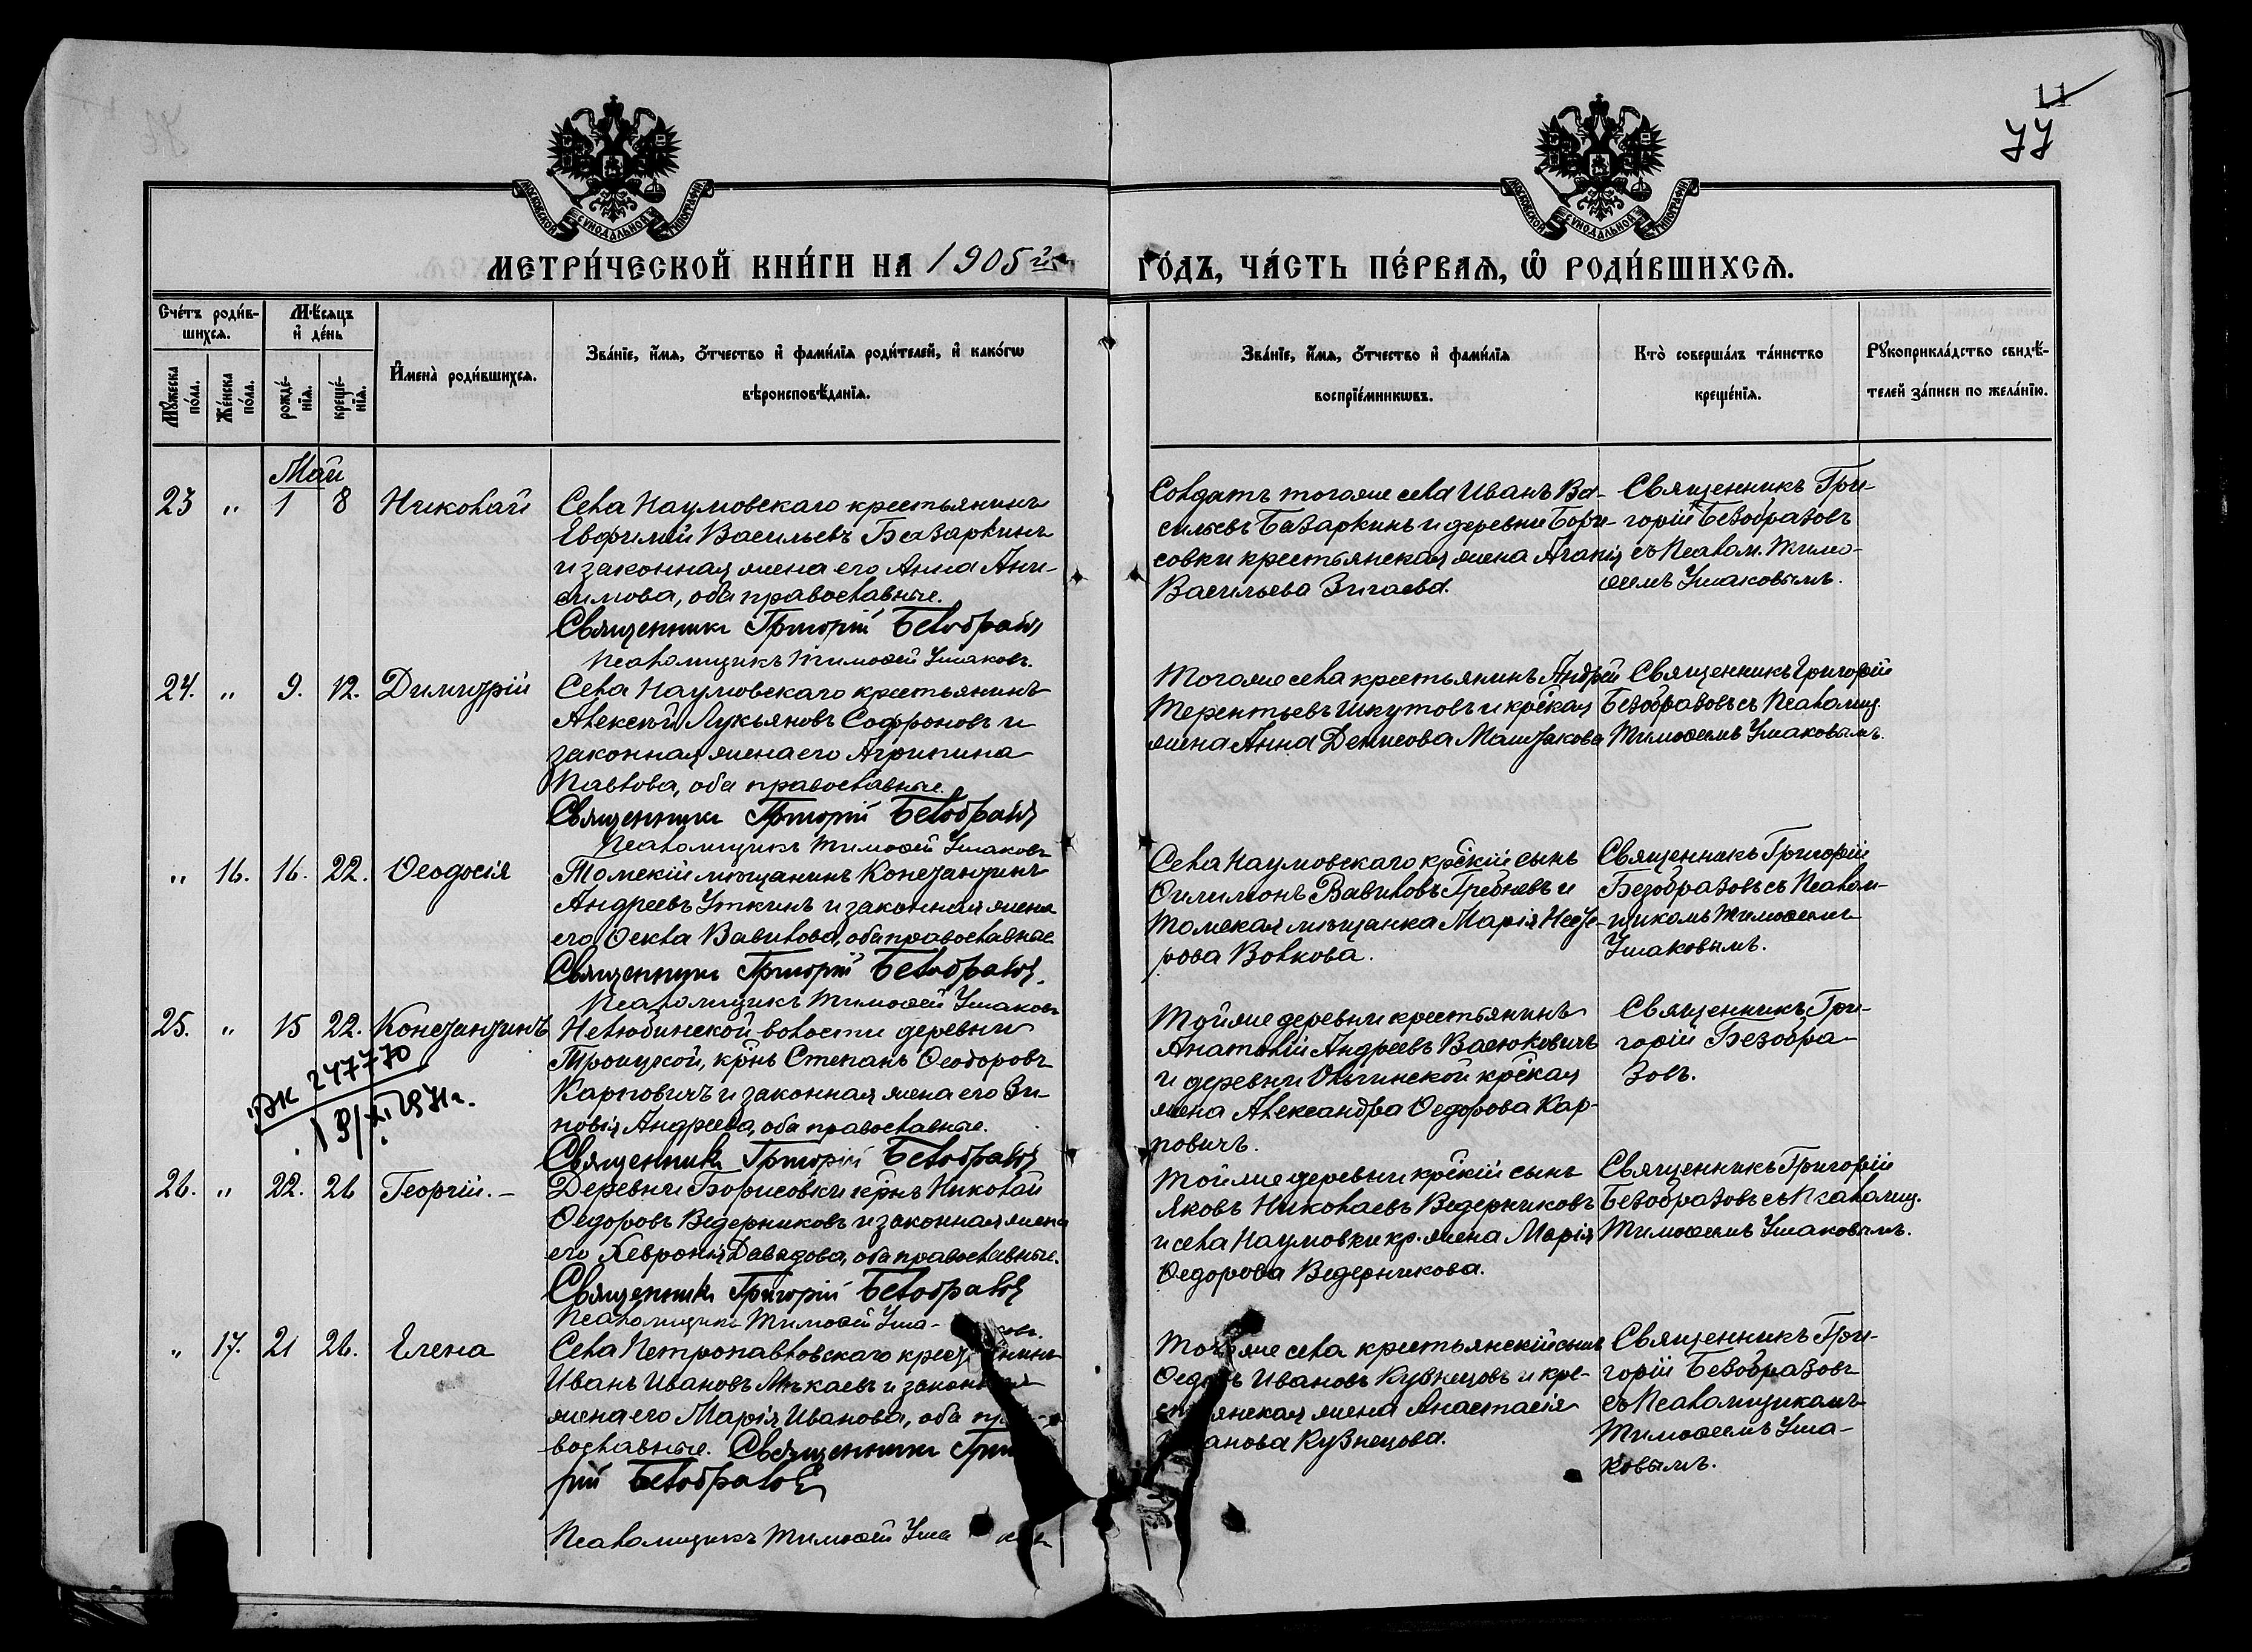 11
77
МОСКОВСКОЙ СѴНОДАЛЬНОЙ ТИПОГРАФІИ
МОСКОВСКОЙ СѴНОДАЛЬНОЙ ТИПОГРАФІИ
МЕТРИ́ЧЕСКОЙ КНИ́ГИ НА 1905 й
ГО́ДЪ, ЧА́СТЬ ПЕ́РВАѦ, Ѡ҆ РОДИ́ВШИХСѦ.
Сче́тъ роди́в-
шихсѧ.
Мѣ́сѧцъ
и҆ де́нь
Мꙋ́жеска
по́ла.
Же́нска
по́ла.
рожде́-
нїѧ.
креще́-
нїѧ.
И҆мена̀ роди́вшихсѧ.
Зва́нїе, и҆́мѧ, ѻ҆́тчество и҆ фамі́лїѧ роди́телей, и҆ како́гѡ
вѣроисповѣ́данїѧ.
Зва́нїе, и҆́мѧ, ѻ҆́тчество и҆ фамі́лїѧ
воспрїе́мникѡвъ.
Кто̀ соверша́лъ та́инство
креще́нїѧ.
Рꙋкоприкла́дство свидѣ́-
телей за́писи по жела́нїю.
Май
23 " 1 8 Николай
Села Наумовскаго крестьянинъ
Евфимій Васильевъ Базаркинъ
и законная жена его Анна Ани-
симова, оба православные.
Священникъ Григорій Безобразов
Псаломщикъ Тимофей Ушаковъ.
Солдатъ тогоже села Иванъ Ва-
сильевъ Базаркинъ и деревни Бори-
совки крестьянская жена Агапія
Васильева Зигаева.
Священникъ Гри-
горій Безобразовъ
съ Псалом. Тимо-
ѳеемъ Ушаковымъ.
24. " 9. 12. Димитрій
Села Наумовскаго крестьянинъ
Алексѣй Лукьяновъ Софроновъ и
законная жена его Агрипина
Павлова, оба православные.
Священникъ Григорій Безобразов
Псаломщикъ Тимофей Ушаковъ
Тогоже села крестьянинъ Андрей
Терентьевъ Шкутовъ и крская
жена Анна Денисова Маштакова
Священникъ Григорій
Безобразовъ съ Псаломщ.
Тимоѳеемъ Ушаковымъ.
" 16. 16. 22. Ѳеодосія
Томскій мѣщанинъ Константинъ
Андреевъ Уткинъ и законная жена
его Ѳекла Вавилова, оба православные
Священникъ Григорій Безобразов.
Псаломщикъ Тимофей Ушаковъ
Села Наумовскаго крскій сынъ
Филимонъ Вавиловъ Гребневъ и
Томская мѣщанка Марія Несте-
рова Волкова.
Священникъ Григорій
Безобразовъ съ Псалом-
щикомъ Тимоѳеемъ
Ушаковымъ.
25. " 15 22. Константинъ
Нелюбинской волости деревни
Троицкой, крнъ Степанъ Ѳеодоровъ
Карповичъ и законная жена его Зи-
новія Андреева, оба православные.
Священникъ Григорій Безобразов
Тойже деревни крестьянинъ
Анатолій Андреевъ Васюковичъ
и деревни Ольгинской крская
жена Александра Ѳедорова Кар-
повичъ.
Священникъ Гри-
горій Безобра-
зовъ.
247770
26. " 22. 26 Георгій. -
Деревни Борисовки крнъ Николай
Ѳедоровъ Ведерниковъ и законная жена
его Хевронія Давидова, оба православные.
Священникъ Григорій Безобразов
Псаломщикъ Тимофей Уша-
ковъ.
Тойже деревни крскій сынъ
Яковъ Николаевъ Ведерниковъ
и села Наумовки кр. жена Марія
Ѳедорова Ведерникова.
Священникъ Григорій
Безобразовъ съ Псаломщ.
Тимоѳеемъ Ушаковымъ.
" 17. 21 26. Елена
Села Петропавловскаго крест нинъ
Иванъ Ивановъ Мѣкаевъ и закон
жена его Марія Иванова, оба пра-
вославные. Священникъ Гри
рій Безобразов
Псаломщикъ Тимофей Уша ковъ
Тогоже села крестьянскій сынъ
Ѳедоръ Ивановъ Кузнецовъ и кре-
стьянская жена Анастасія
Иванова Кузнецова.
Священникъ Гри-
горій Безобразовъ
съ Псаломщикомъ
Тимоѳеемъ Уша-
ковымъ.